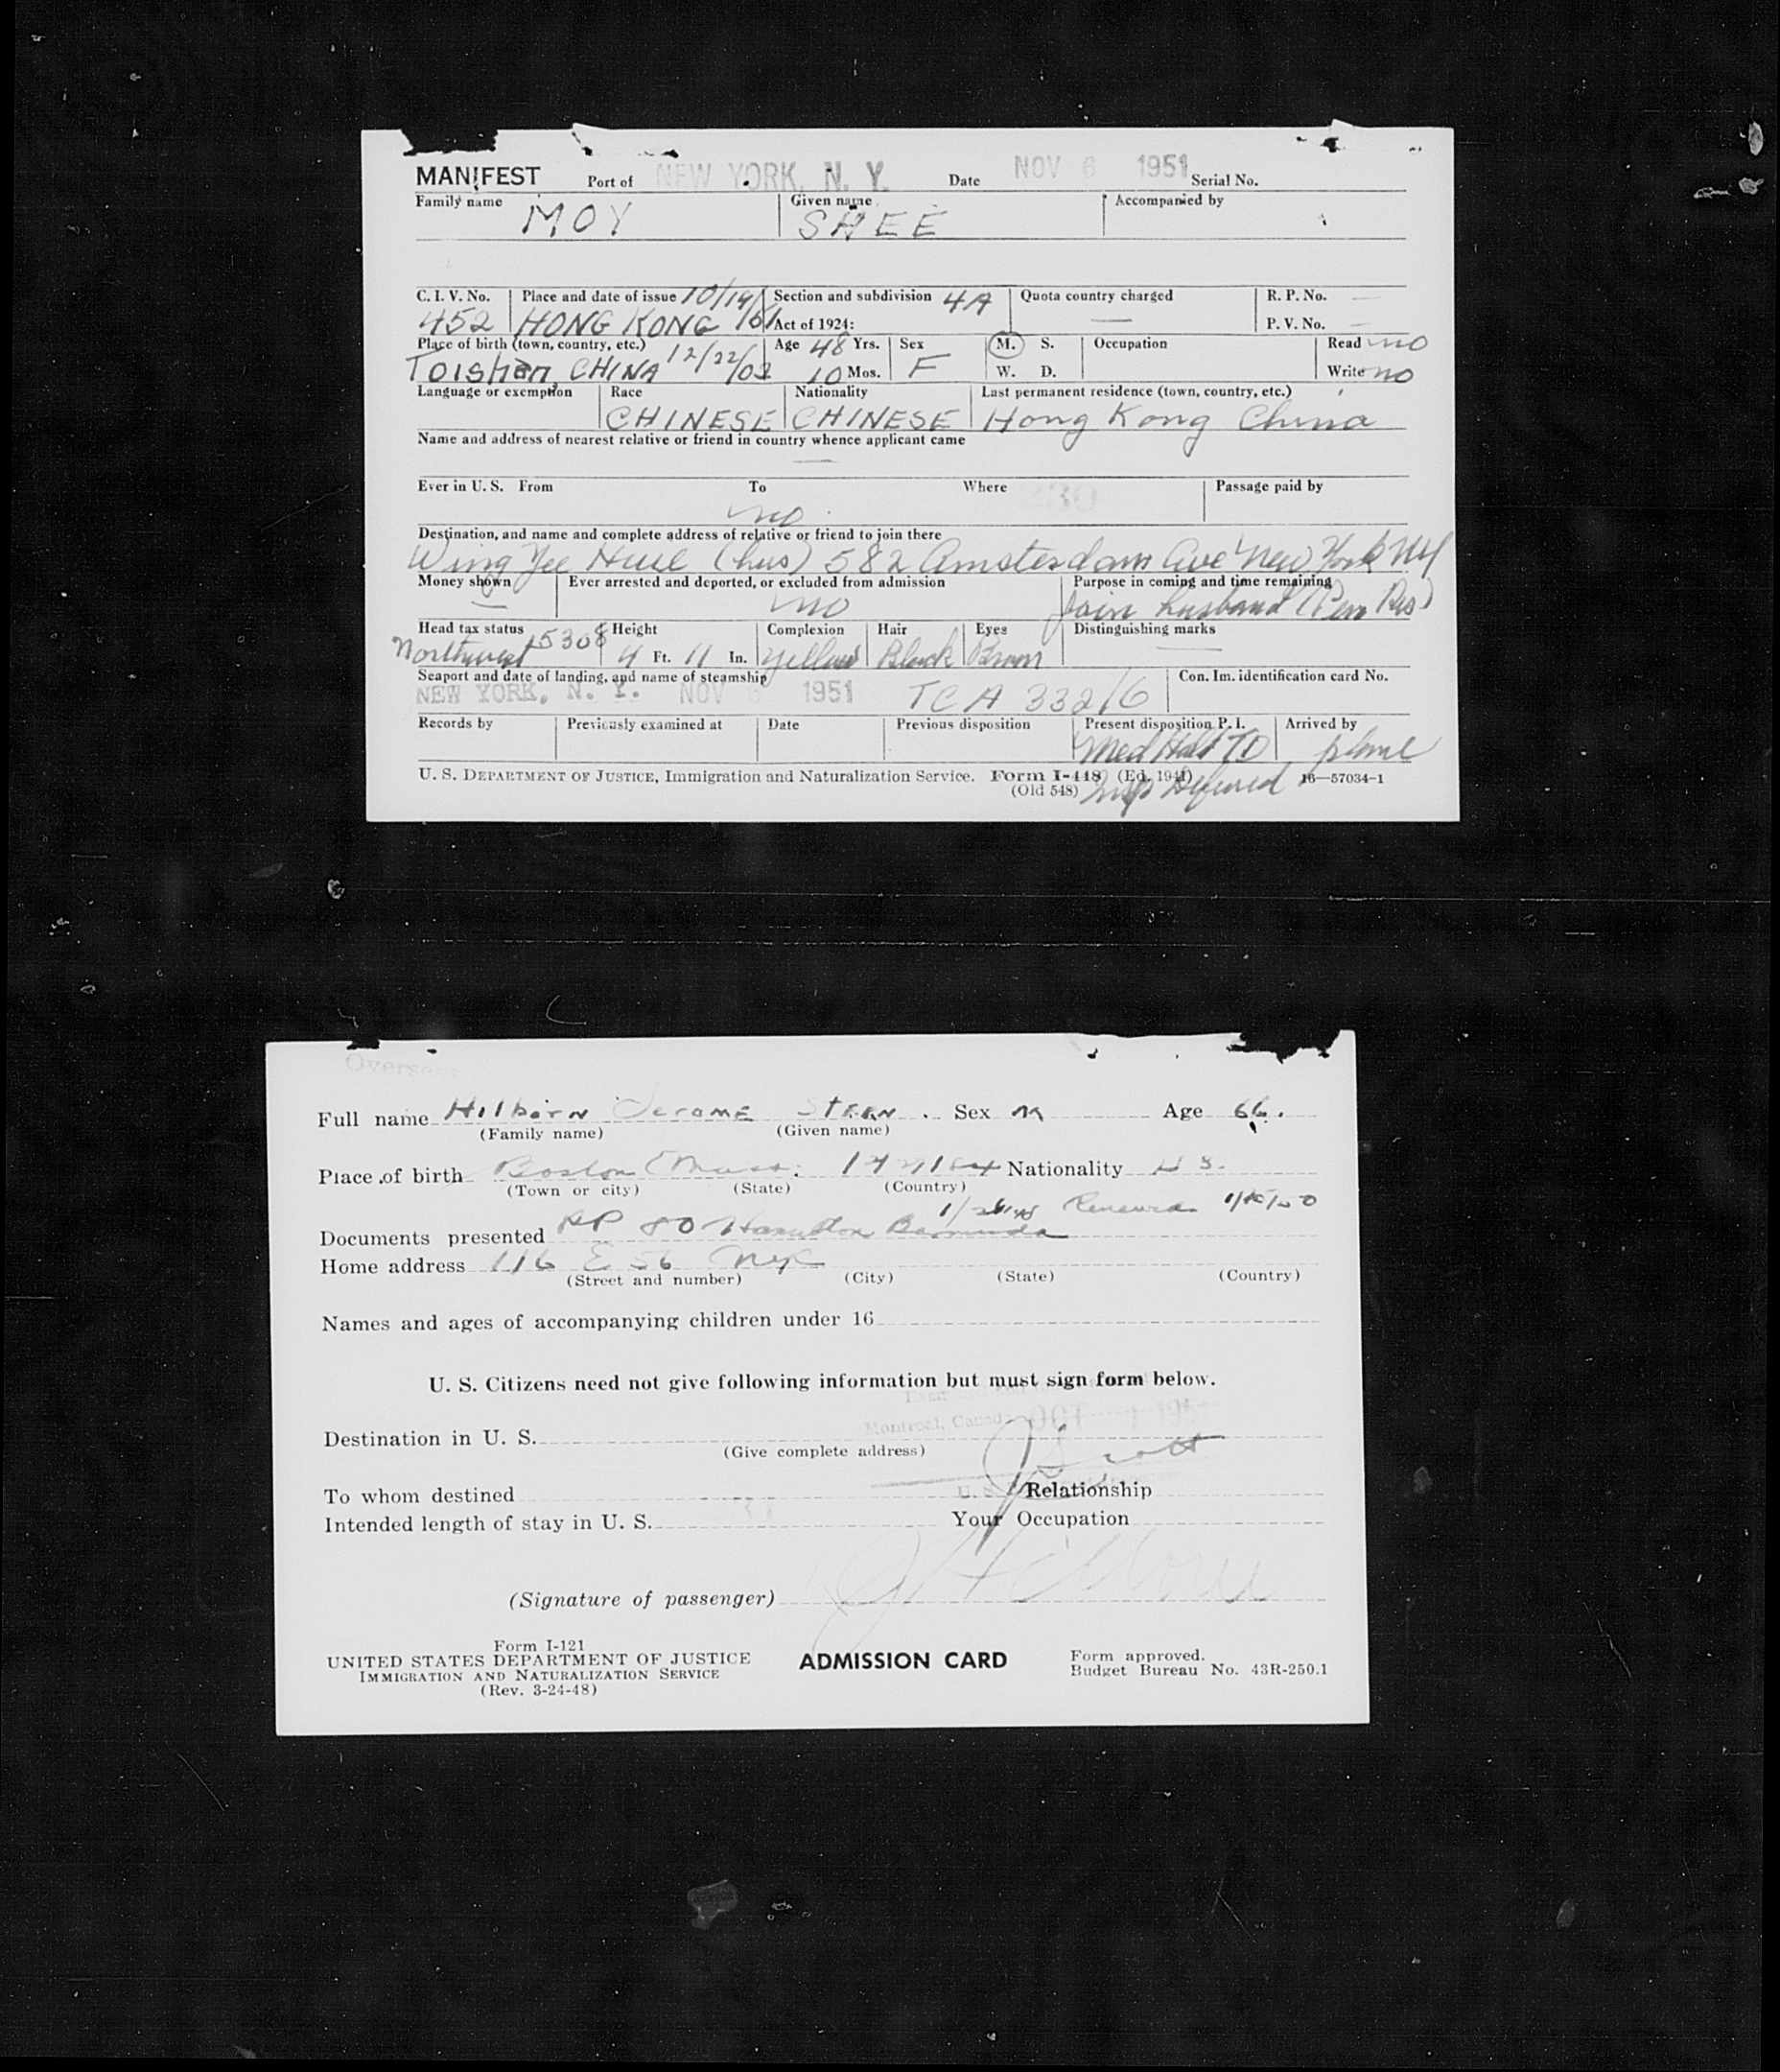 MANIFEST Port of NEW YORK, N. Y. Date NOV 6 1951 Serial No.
Family name MOY Given name SHEE Accompanied by
C. I. V. No. Place and date of issue 10/19/51 Section and subdivision 4A Quota country charged — R. P. No. —
452 HONG KONG Act of 1924: P. V. No. —
Place of birth (town, country, etc.) 12/22/02 Age 48 Yrs. Sex M. S. Occupation Read no
Toishan, CHINA 10 Mos. F W. D. Write no
Language or exemption Race Nationality Last permanent residence (town, country, etc.)
CHINESE CHINESE Hong Kong China
Name and address of nearest relative or friend in country whence applicant came
—
Ever in U. S. From To Where Passage paid by
no
Destination, and name and complete address of relative or friend to join there
Wing Yee (hus) 582 Amsterdam Ave New York NY
Money shown Ever arrested and deported, or excluded from admission Purpose in coming and time remaining
— no Join husband (Per Res)
Head tax status Height Complexion Hair Eyes Distinguishing marks
Northwest 4 Ft. 11 In. Yellow Black Brown —
Seaport and date of landing, and name of steamship Con. Im. identification card No.
NEW YORK, N. Y. NOV 1951 TCA 332/6
Records by Previously examined at Date Previous disposition Present disposition P. I. Arrived by
Med Hold TD plane
U. S. DEPARTMENT OF JUSTICE, Immigration and Naturalization Service. Form I-448 (Ed. 1941) 16—57034-1
(Old 548) Insp Deferred
Full name Hilborn Jerome Stern. Sex M Age 66.
(Family name) (Given name)
Place of birth Boston Mass. Nationality U S.
(Town or city) (State) (Country)
Renewed
Documents presented RP 80 Hamilton Bermuda
Home address 116 E 56 NYC
(Street and number) (City) (State) (Country)
Names and ages of accompanying children under 16
U. S. Citizens need not give following information but must sign form below.
Montreal, Canada OCT
Destination in U. S.
(Give complete address)
J Scott
To whom destined U. S. Relationship
Intended length of stay in U. S. Your Occupation
(Signature of passenger) J Hilborn
Form I-121
UNITED STATES DEPARTMENT OF JUSTICE ADMISSION CARD Form approved.
IMMIGRATION AND NATURALIZATION SERVICE Budget Bureau No. 43R-250.1
(Rev. 3-24-48)